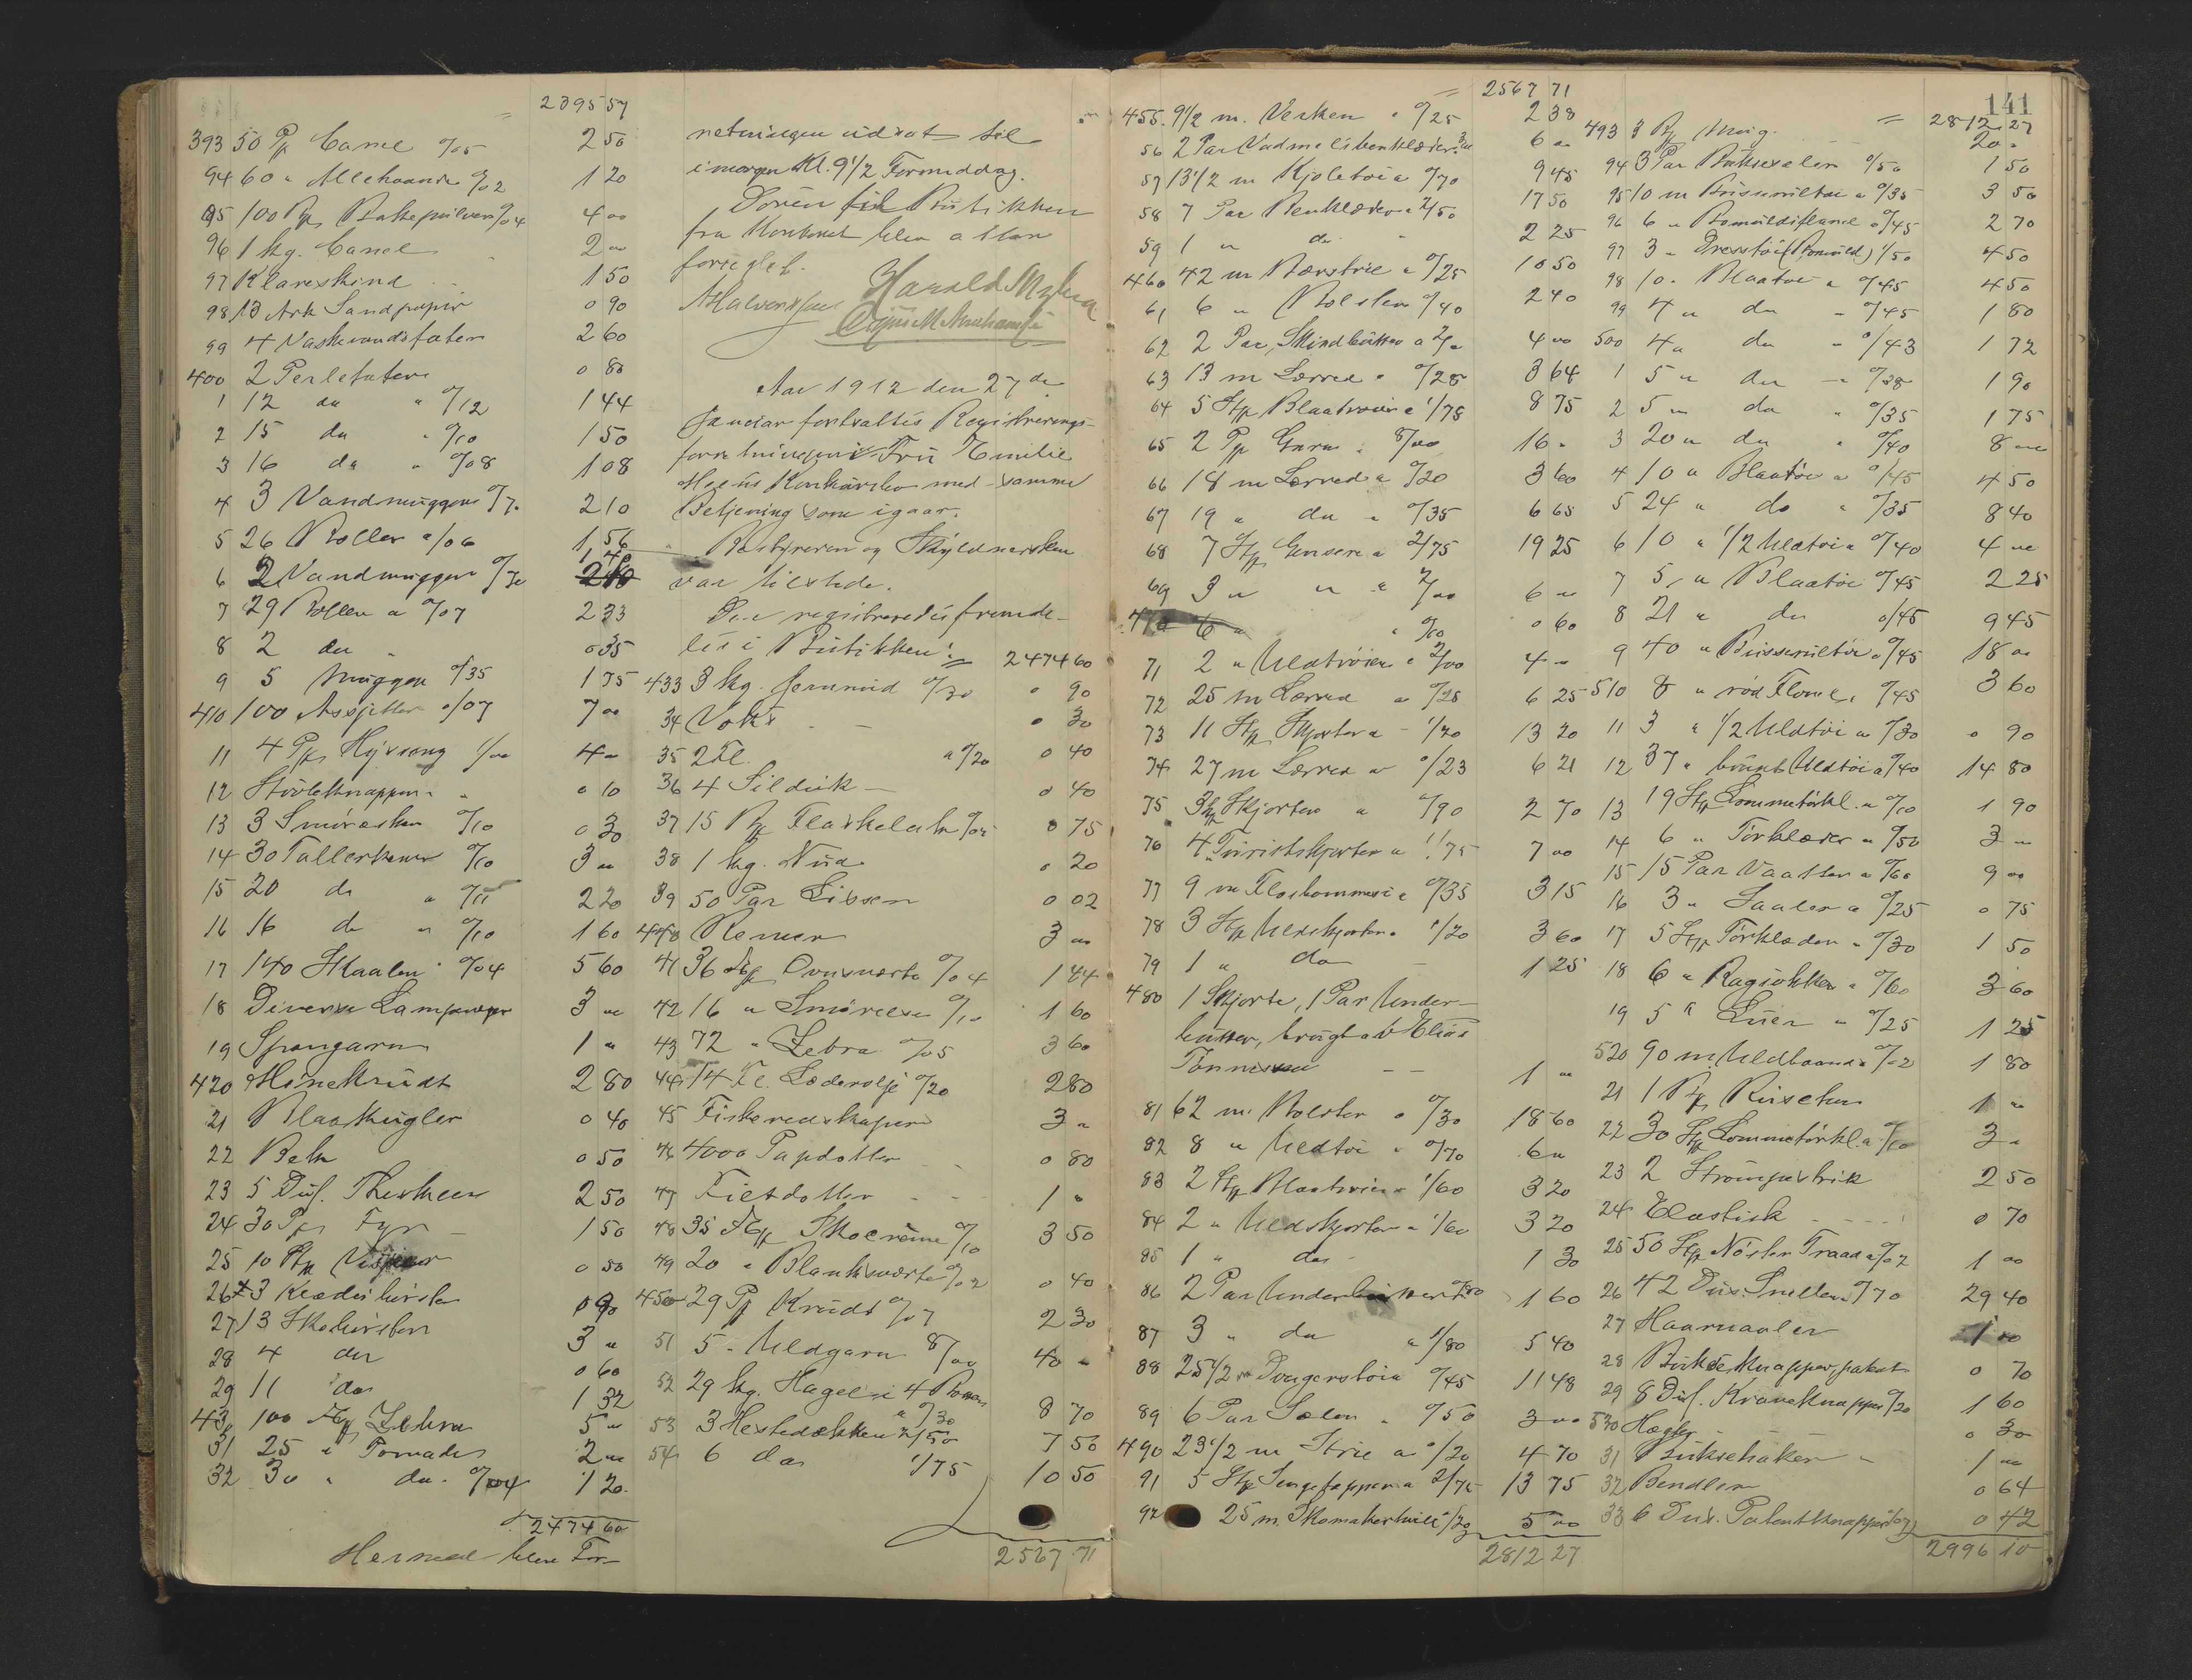 = 2395 57
393 50 Pk Canel 0/05 2 50
94 60 " Allehaande 0/02 1 20
95 100 Pk Bakepulver 0/04 4 00
96 1 kg. Canel 2 00
97 Klareskind 1 50
98 13 Ark Sandpapir 0 90
99 4 Vaskevandsfater 2 60
400 2 Perlefater 0 80
1 12 do " 0/12 1 44
2 15 do " 0/10 1 50
3 16 do " 0/08 1 08
4 3 Vandmugger 0/70 2 10
5 26 Boller a/06 1 56
6 2 Vandmugger 0/70 1 40
7 29 Boller a 0/07 2 33
8 2 do " 0 35
9 5 Mugger 0/35 1 75
410 100 Assjetter 0/07 7 00
11 4 Pk 1/00 4 "
12 Støvleknapper 0 10
13 3 Smøræsker 0/10 0 30
14 30 Tallerkener 0/10 3 00
15 20 do " 0/11 2 20
16 16 do " 0/10 1 60
17 140 Skaaler 0/04 5 60
18 Diverse Lampe 3 00
19 Spongarn 1 "
420 Mønekrudt 2 80
21 Blaakugler 0 40
22 Bek 0 50
23 5 Dus. Theskeer 2 50
24 30 Pk Fyr 1 50
25 10 Stk 0 50
26 3 Klædesbørster 0 90
27 13 Skobørster 3 "
28 4 do 0 60
29 11 do 1 32
430 100 Æsk Zebra 5 00
31 25 " Pomade 2 00
32 30 " do. 0/04 1 20
2474 60
Hermed blev For-
retningen udsat til
imorgen Kl. 9 1/2 Formiddag.
Døren til Butikken
fra Kontoret blev atter
forseglet.
Harald
Aar 1912 den 27de
Januar fortsattes Registrerings-
forretningen i Fru Emilie
Konkursbo med samme
Betjening som igaar.
Bestyreren og Skyldnersken
var tilstede.
Der registreredes fremde-
les i Butikken: = 2474 60
433 3 kg. Jernmid 0/30 0 90
34 Voks 0 30
35 2 Fl. a 0/20 0 40
36 4 Sildik 0 40
37 15 Pk Flaskelak 0/05 0 75
38 1 kg. 0 20
39 50 Par Lisser 0 02
440 Remer 3 00
41 36 Æsk Ovnsværte 0/04 1 44
42 16 " Smørelse 0/10 1 60
43 72 " Zebra 0/05 3 60
44 14 Fl. Læderolje 0/20 2 80
45 Fiskeredskaper 3 "
46 4000 Papdotter 0 80
47 Filtdotter 1 "
48 35 Æsk Skocreme 0/10 3 50
49 20 " Blanksværte 0/02 0 40
450 29 Pk Krudt 0/07 2 30
51 5 " Uldgarn 8/00 40 "
52 29 kg. Hagel i 4 Poser
a 0/30 8 70
53 3 Hestedækken 2/50 7 50
54 6 do 1/75 10 50
2567 71
141
= 2567 71
455 9 1/2 m. Verken " 0/25 2 38
56 2 Par Vadmelsbenklæder 3/00 6 00
57 13 1/2 m Kjoletøi a 0/70 9 45
58 7 Par Benklæder a 2/50 17 50
59 1 " do 2 25
460 42 m Bærstrie a 0/25 10 50
61 6 " Bolster 0/40 2 40
62 2 Par Skindbukser a 2/" 4 00
63 13 m Lærred " 0/28 3 64
64 5 Stk Blaatrøier a 1/75 8 75
65 2 Pk Garn " 8/00 16 "
66 18 m Lærred a 0/20 3 60
67 19 " do " 0/35 6 65
68 7 Stk Gensere a 2/75 19 25
69 3 " " " 2/00 6 00
470 6 " " 0/10 0 60
71 2 " Uldtrøier " 2/00 4 "
72 25 m Lærred a 0/25 6 25
73 11 Stk Skjorter a 1/20 13 20
74 27 m Lærred a 0/23 6 21
75 3 Stk Skjorter a 0/90 2 70
76 4 " Turistskjorter a 1/75 7 00
77 9 m a 0/35 3 15
78 3 Stk Uldskjorter " 1/20 3 60
79 1 " do 1 25
480 1 Skjorte, 1 Par Under-
bukser, brugt av Elias
Tønnessen 1 "
81 62 m. Bolster " 0/30 18 60
82 8 " Uldtøi " 0/70 6 "
83 2 Stk Blaatrøier " 1/60 3 20
84 2 " Uldskjorter a 1/60 3 20
85 1 " do 1 30
86 2 Par Underbukser 0/80 1 60
87 3 " do a 1/80 5 40
88 25 1/2 m 0/45 11 48
89 6 Par Sæler " 0/50 3 00
490 23 1/2 m Strie a 0/20 4 70
91 5 Stk Sengetepper a 2/75 13 75
92 25 m. Skomakertvill 0/20 5 00
2812 27
= 2812 27
493 3 Pk 20 "
94 3 Par Bukseseler 0/50 1 50
95 10 m Busserultøi a 0/35 3 50
96 6 " Bomuldsflanel a 0/45 2 70
97 3 " Dresstøi (Bomuld) 1/50 4 50
98 10 " Blaatøi a 0/45 4 50
99 4 " do " 0/45 1 80
500 4 " do " 0/43 1 72
1 5 " do " 0/38 1 90
2 5 " do " 0/35 1 75
3 20 " do " 0/40 8 00
4 10 " Blaatøi a 0/45 4 50
5 24 " do " 0/35 8 40
6 10 " 1/2 Uldtøi a 0/40 4 00
7 5 " Blaatøi 0/45 2 25
8 21 " do 0/45 9 45
9 40 " Busserultøi a 0/45 18 00
510 8 " rød Flonel, 0/45 3 60
11 3 " 1/2 Uldtøi a 0/30 0 90
12 37 " Uldtøi a 0/40 14 80
13 19 Stk Lommetørkl. a 0/10 1 90
14 6 " Tørklæder a 0/50 3 "
15 15 Par Vaatter a 0/60 9 00
16 3 " Saaler a 0/25 0 75
17 5 Stk Tørklæder " 0/30 1 50
18 6 " Ragsokker " 0/60 3 60
19 5 " Luer " 0/25 1 25
520 90 m. Uldbaand a 0/02 1 80
21 1 Pk 1 "
22 30 Stk Lommetørkl. a 0/10 3 "
23 2 Strømpestrik 2 50
24 Elastisk 0 70
25 50 Stk Nøster Traad a 0/02 1 00
26 42 Dus. Sneller 0/70 29 40
27 Haarnaaler 1 00
28 Bukseknapper, pakat 0 70
29 8 Dus. Kraveknapper 0/20 1 60
530 Hægter 0 30
31 Buksehaker 1 00
32 Bendler 0 64
33 6 Dus. Patentknapper 0/07 0 42
2996 10